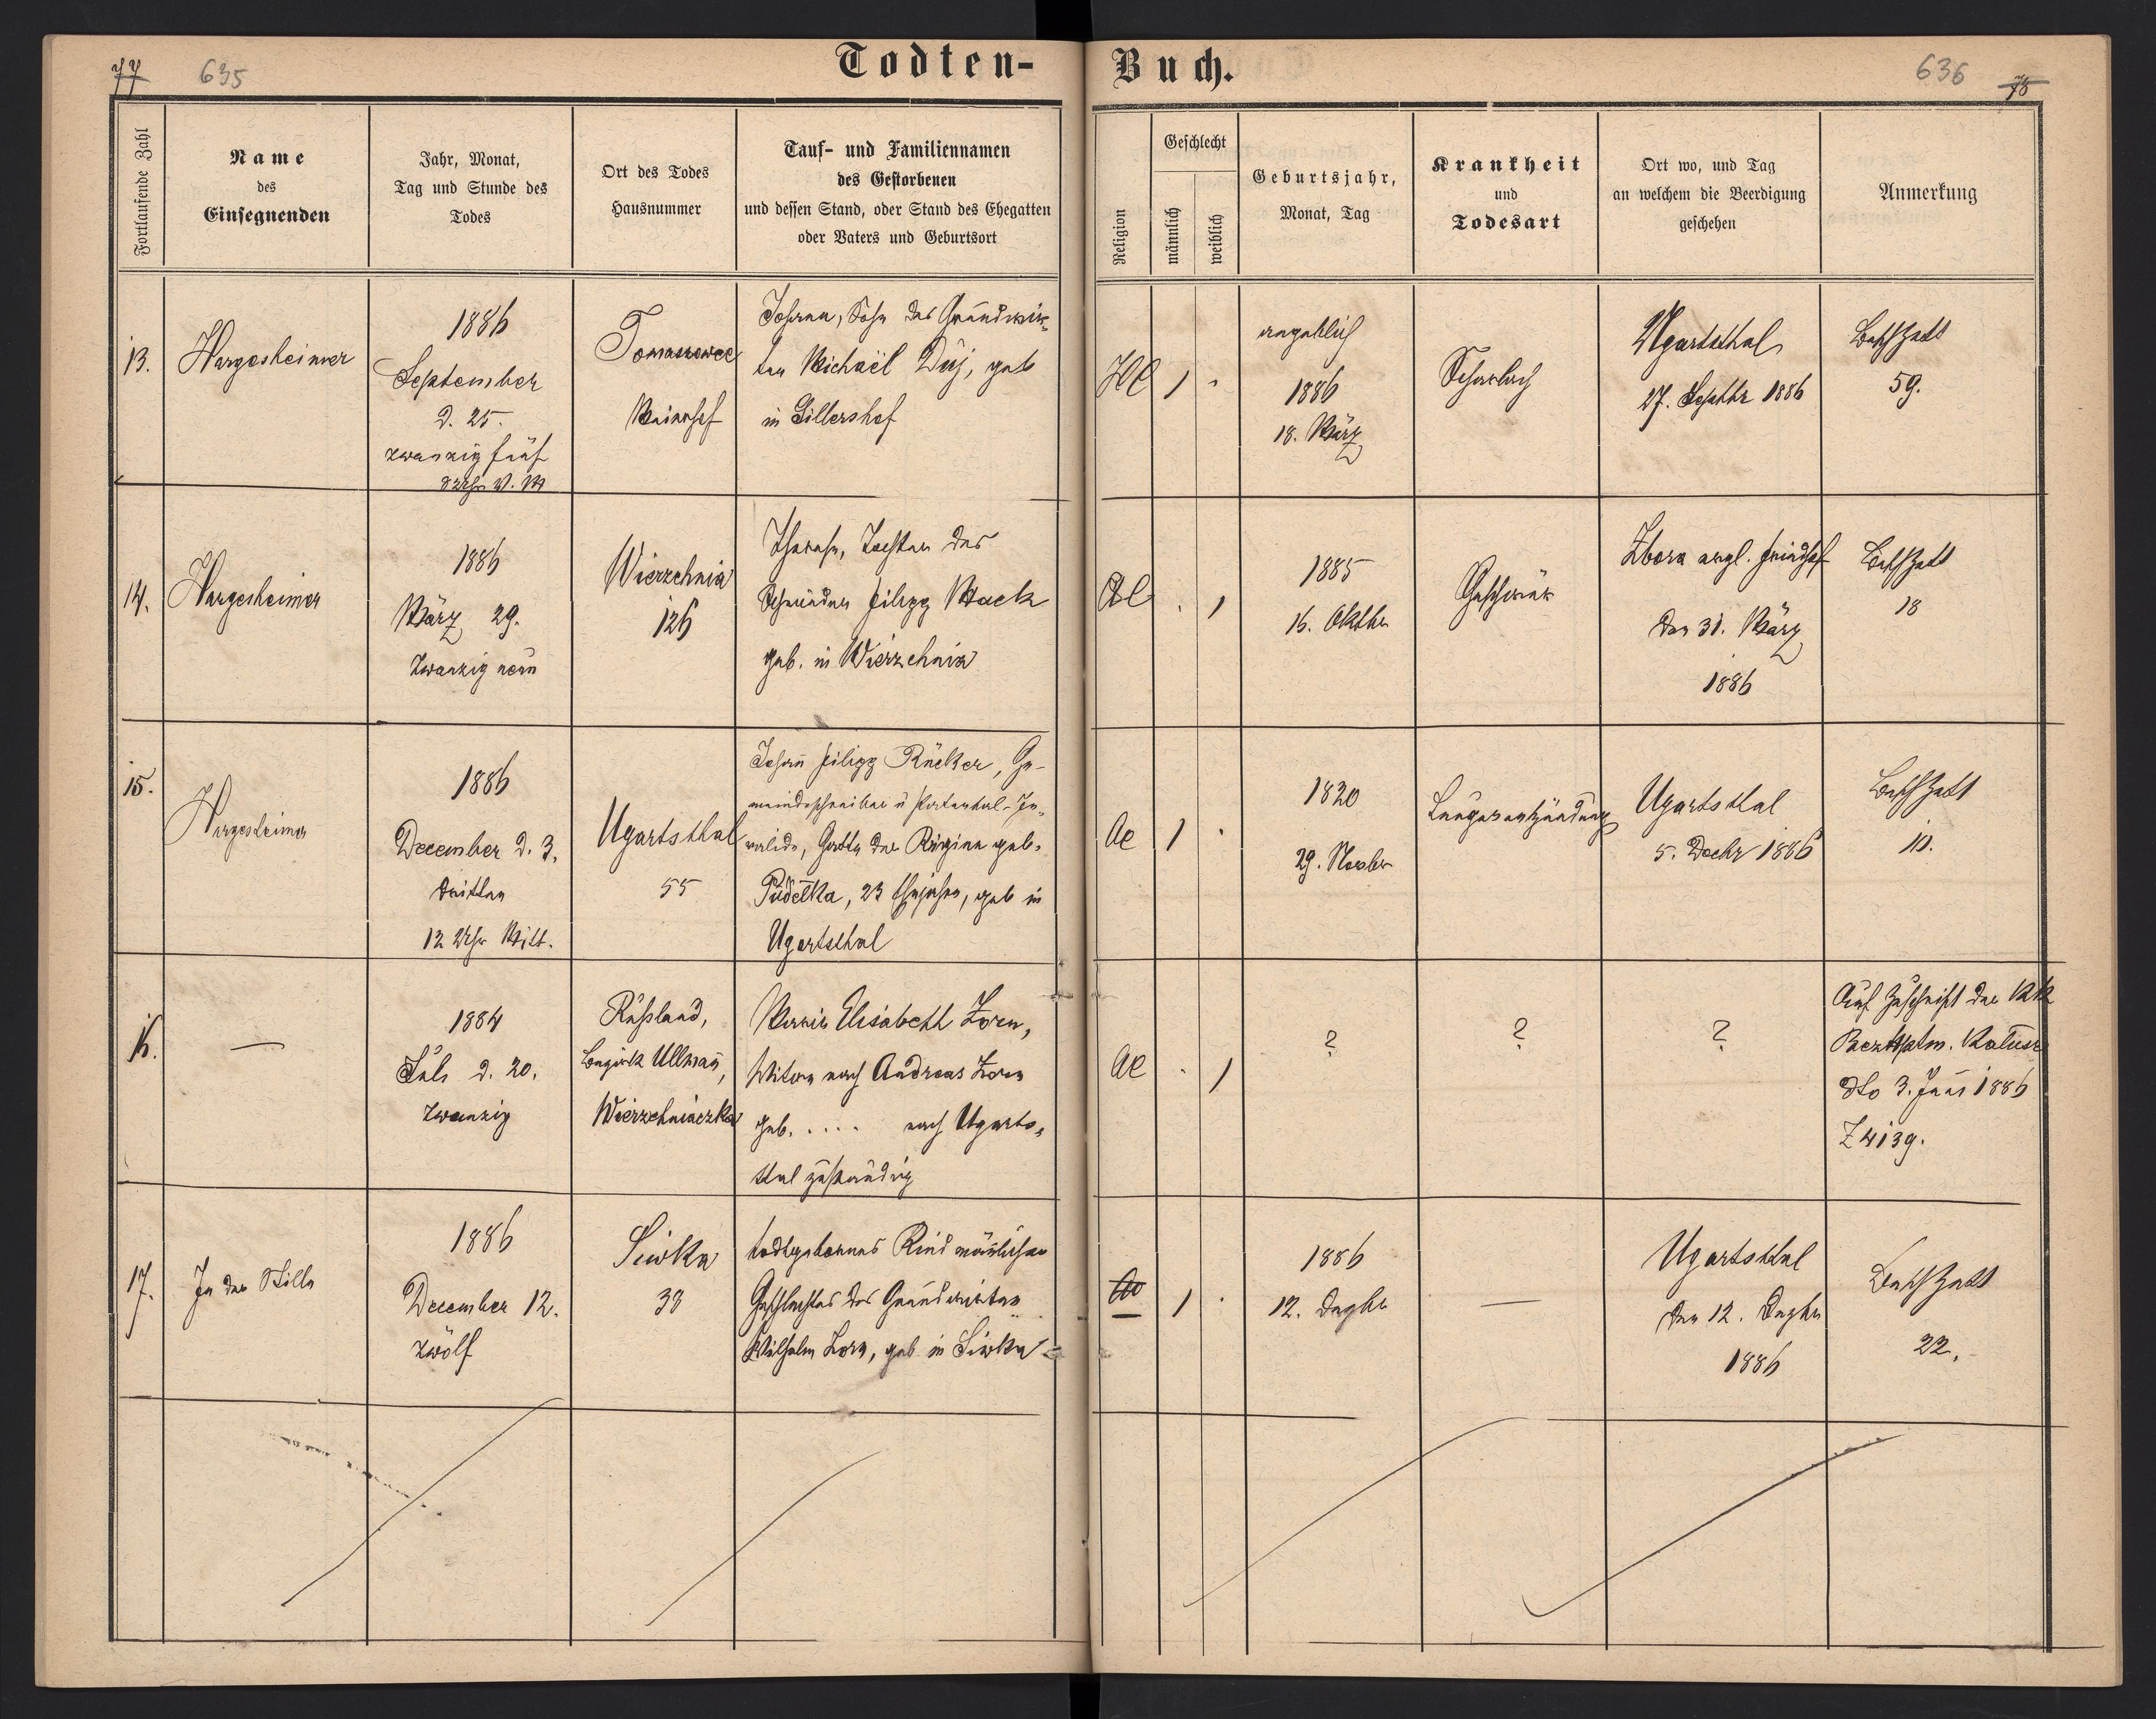 77 635
Todten-
Buch.
636 78
Fortlaufende Zahl
Name
des
Einsegnenden
Jahr, Monat,
Tag und Stunde des
Todes
Ort des Todes
Hausnummer
Tauf- und Familiennamen
des Gestorbenen
und dessen Stand, oder Stand des Ehegatten
oder Vaters und Geburtsort
Religion
Geschlecht
männlich
weiblich
Geburtsjahr,
Monat, Tag
Krankheit
und
Todesart
Ort wo, und Tag
an welchem die Beerdigung
geschehen
Anmerkung
13.
Hargesheimer
1886
September
d. 25.
zwanzig fünf
Uhr V. M
Tomaszowce
Johann, Sohn des Grundwir-
ten Michaël Düj, geb
in Sillershof
1
angeblich
1886
18. März
Scharlach
Ugartsthal
27. Septbr 1886
59.
14.
Hargesheimer
1886
März 29.
Zwanzig neun
Wierzchnia
126
Therese, Tochter des
Filipp Mack
geb. in Wierzchnia
1
1885
16. Oktbr
Geschwür
Zbora evgl. Friedhof
den 31. März
1886
18
15.
Hargesheimer
1886
December d. 3.
dritten
12 Uhr Mitt.
Ugartsthal
55
Johann Filipp Rücker, Ge-
meindeschreiber u Patental-In-
valide, Gatte der Regina geb.
Pudelka, 23 Ehejahre, geb in
Ugartsthal
1
1820
29. Novbr
Lungenentzündung
Ugartsthal
5. Decbr 1886
10.
16.
—
1884
Juli d. 20.
zwanzig
Rußland,
Bezirk Ullman,
Wierzchniaczka
Maria Elisabeth Zorn,
Witwe nach Andreas Zorn
geb. .... nach Ugarts-
thal zuständig
1
?
?
?
Auf Zuschrift der kk
Bezhptm. Kalusz
dto 3. Juni 1886
Z 4139.
17.
In der Stille
1886
December 12.
zwölf
Siwka
33
todtgebornes Kind männlichen
Geschlechtes des Grundwirten
Wilhelm Zorn, geb in Siwka
1
1886
12. Dezbr
—
Ugartsthal
den 12. Dezbr
1886
22.